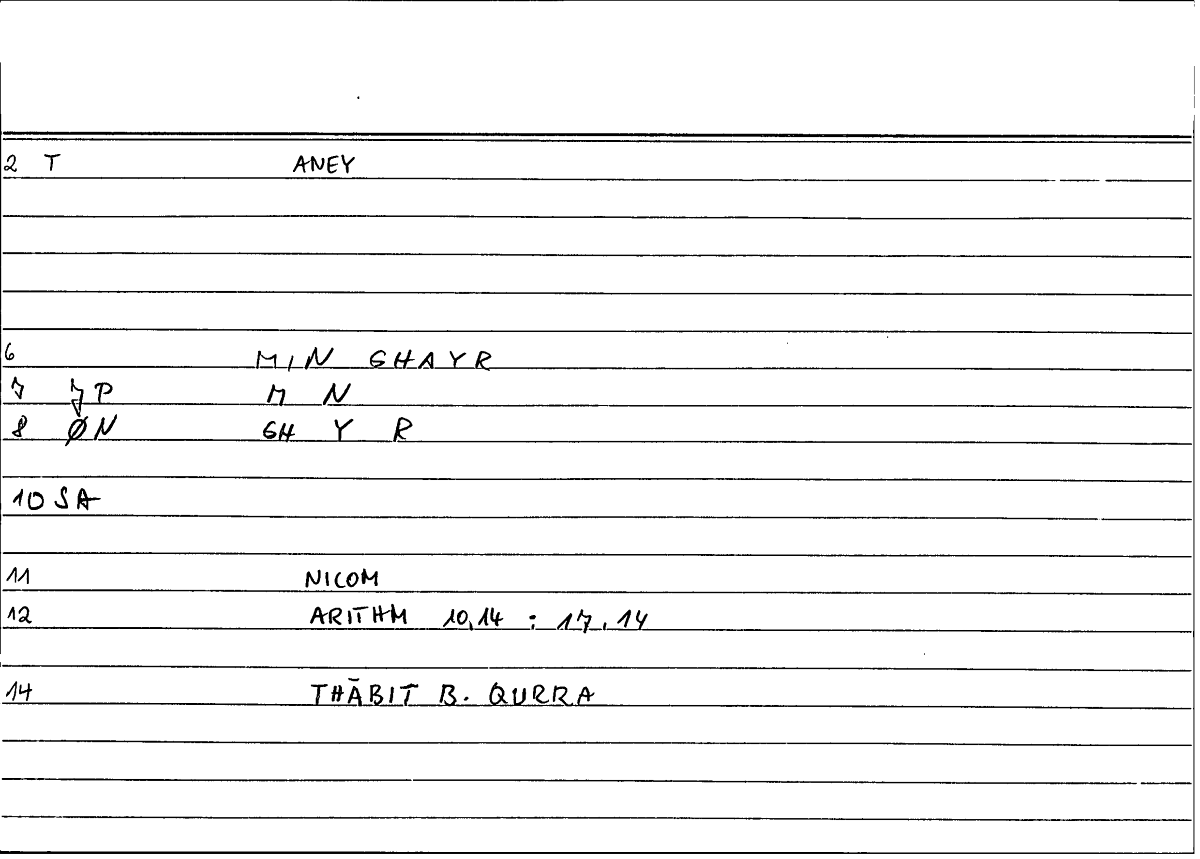 2 T ANEY
6 MIN GHAYR
7 7P M N
8 ØN GH Y R
10 SA
11 NICOM
12 ARITHM 10,14 : 17,14
14 THĀBIT B. QURRA